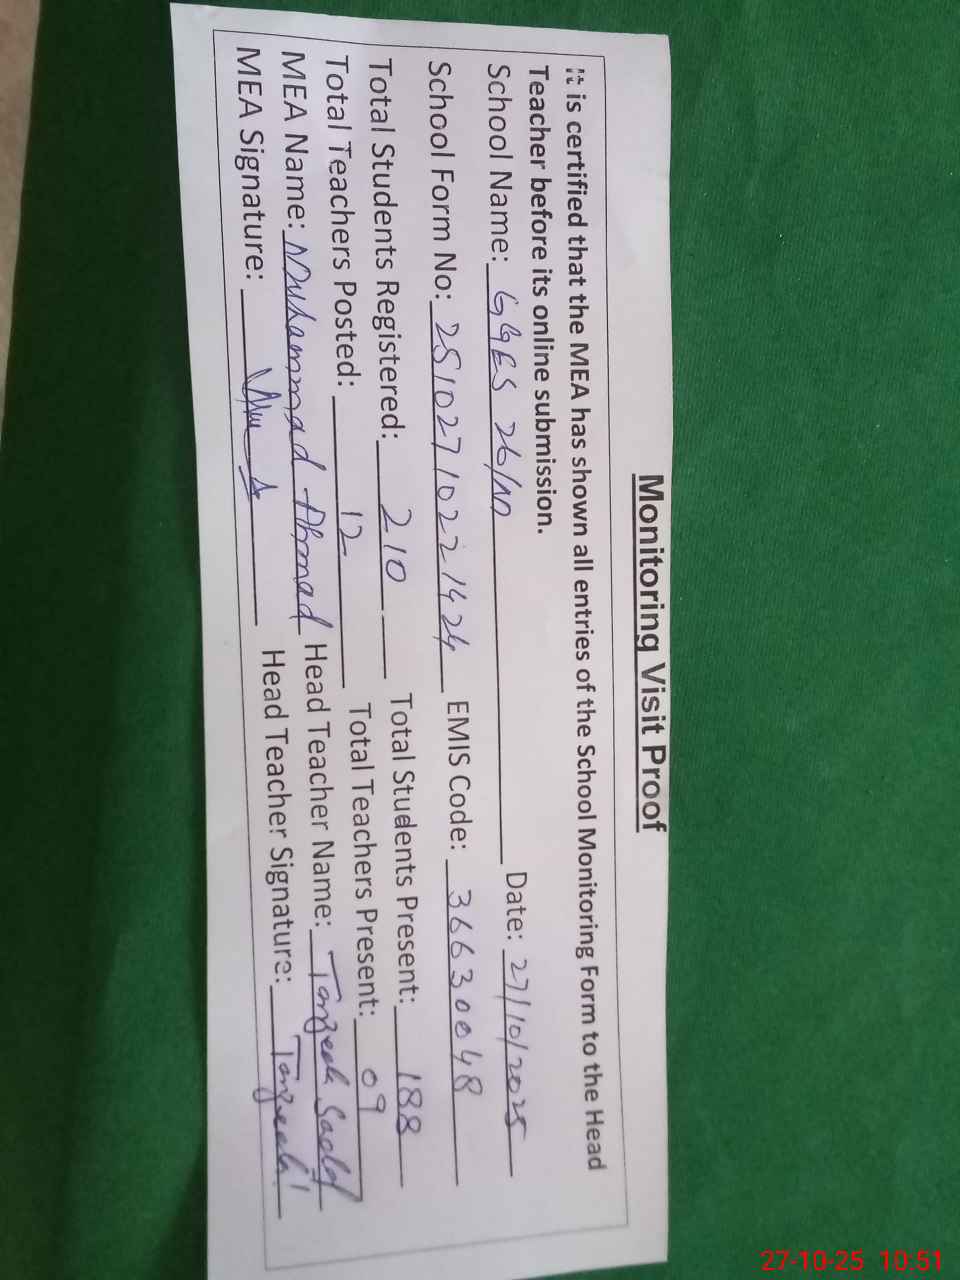 Monitoring Visit Proof
It is certified that the MEA has shown all entries of the School Monitoring Form to the Head
Teacher before its online submission.
School Name: GGES 26/NP Date: 27/10/2025
School Form No: 25102710221424 EMIS Code: 36630048
Total Students Registered: 210 Total Students Present: 188
Total Teachers Posted: 12 Total Teachers Present: 09
MEA Name: Muhammad Ahmad Head Teacher Name: Tanzeela
MEA Signature: Head Teacher Signature: Tanzeela
27-10-25 10:51